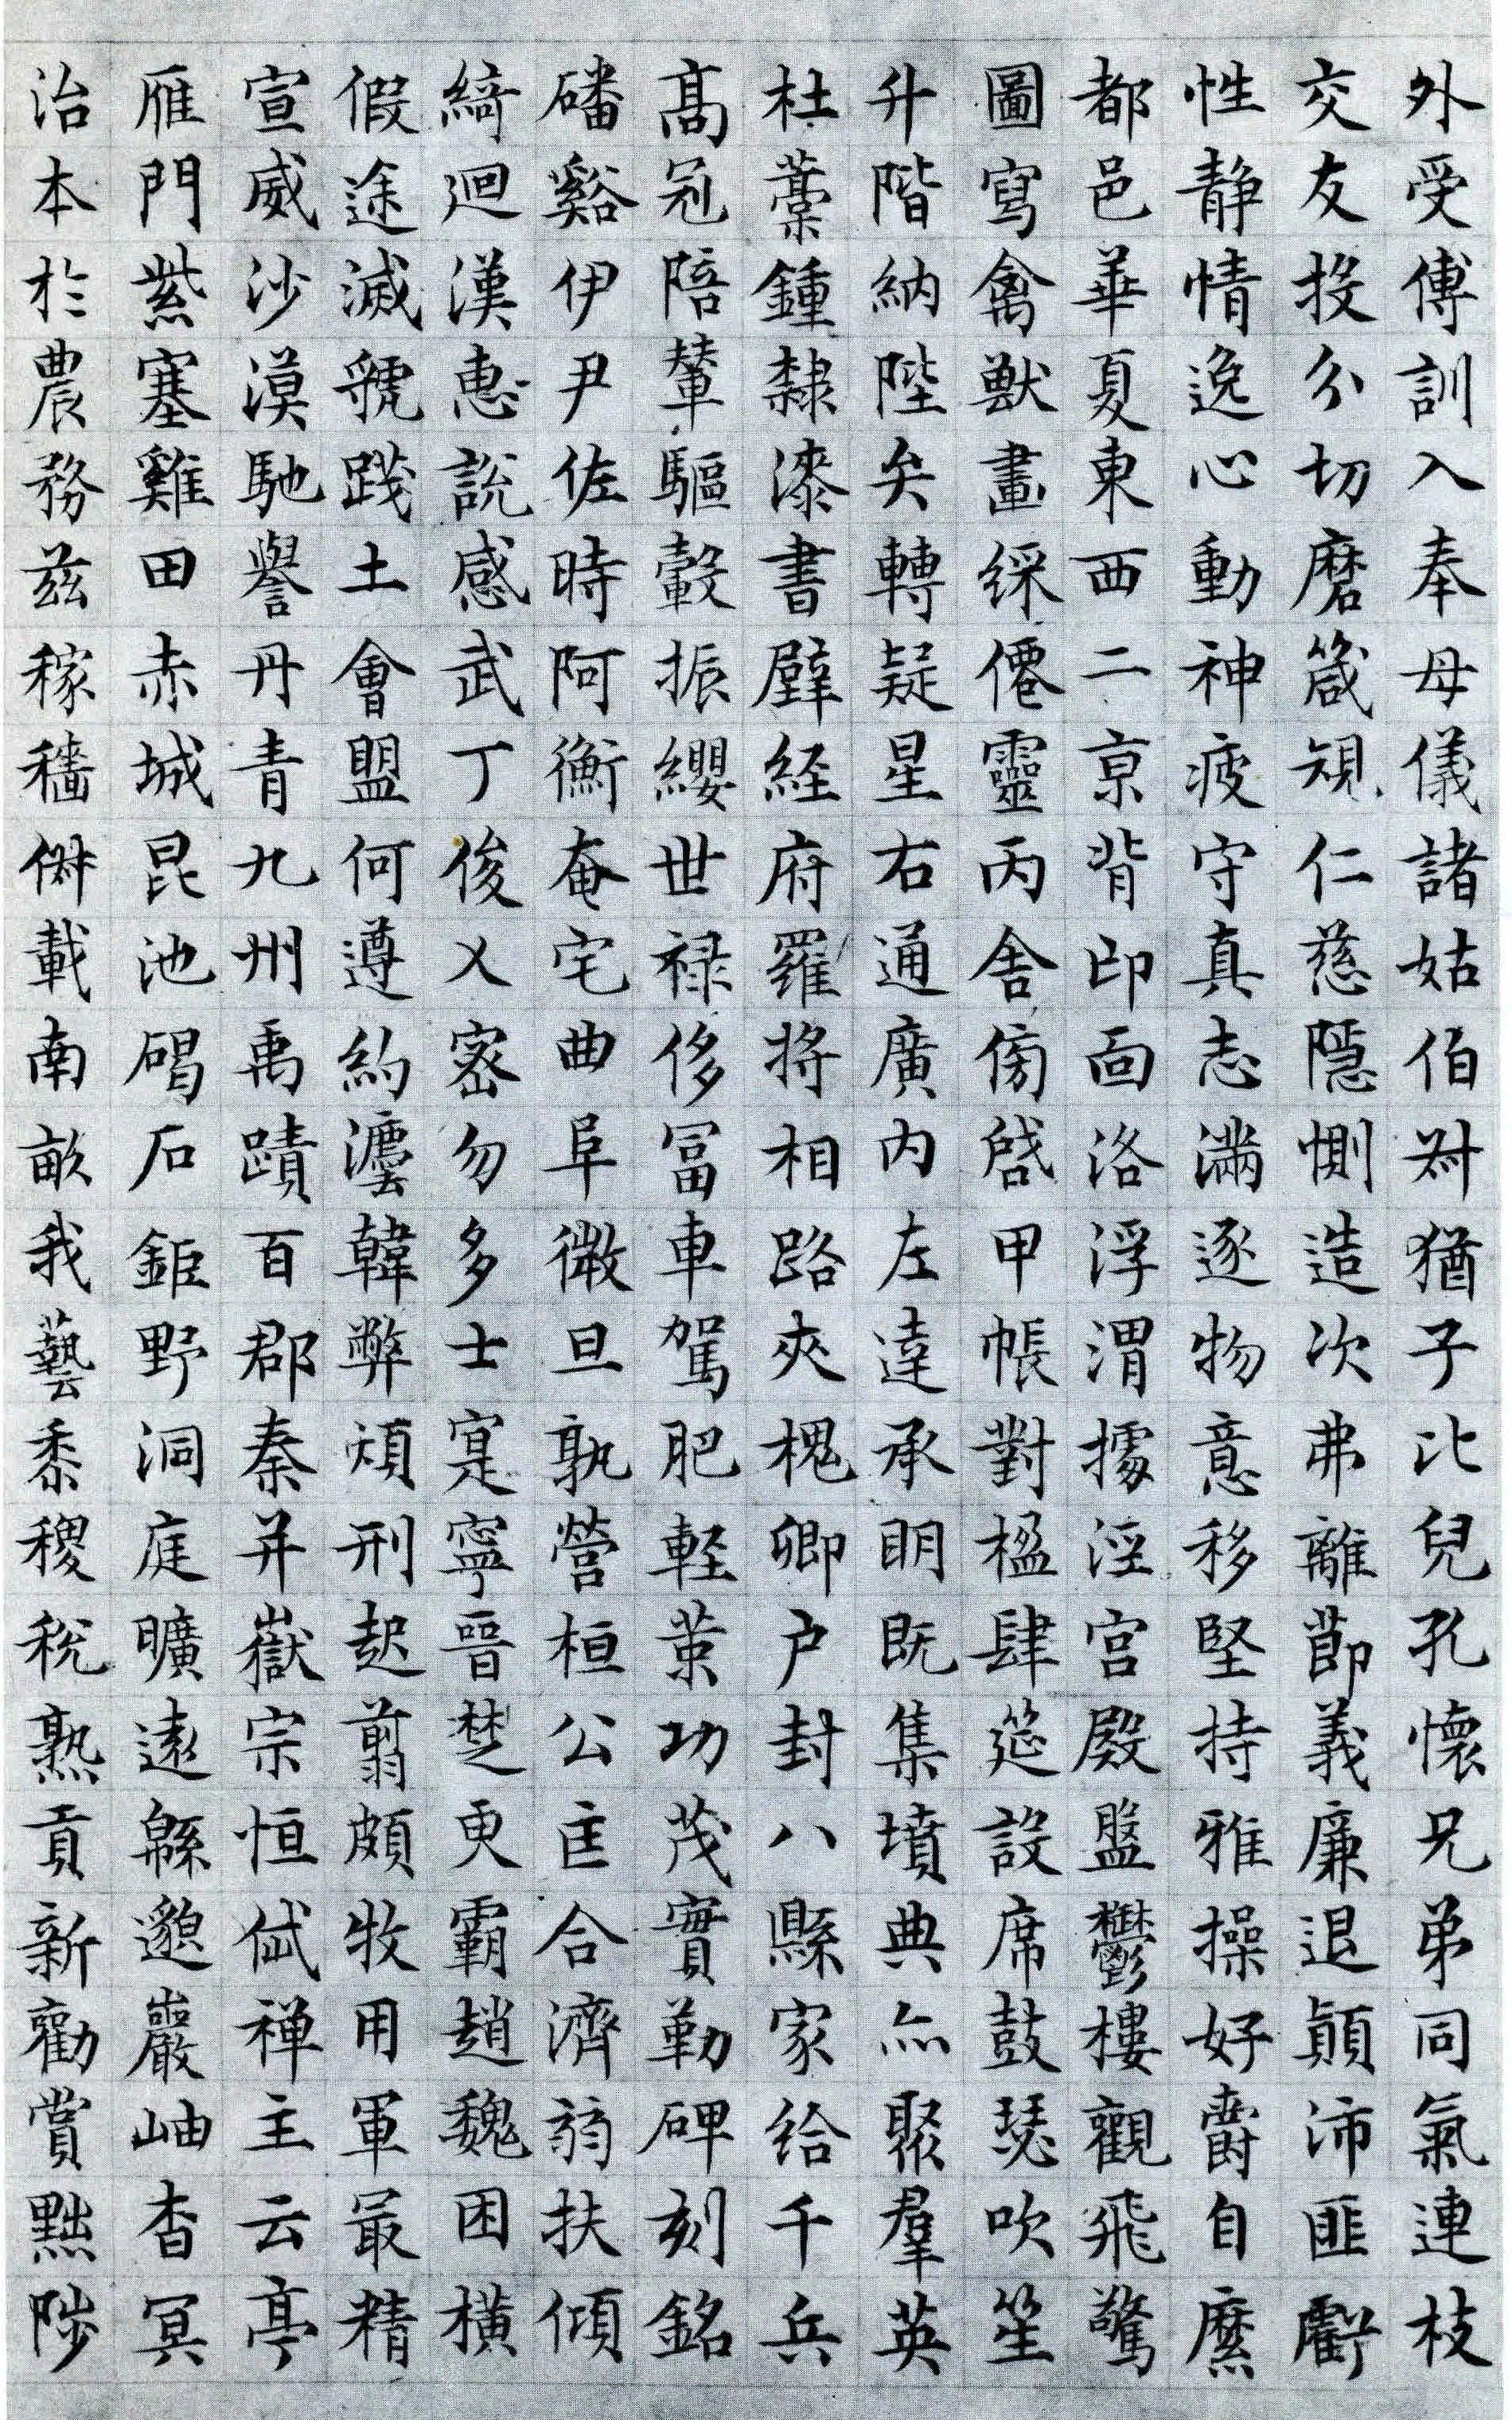 外受傅訓入奉母儀諸姑伯叔猶子比兒孔懷兄弟同氣連枝
交友投分切磨箴規仁慈隱惻造次弗離節義廉退顛沛匪虧
性静情逸心動神疲守真志滿逐物意移堅持雅操好爵自縻
都邑華夏東西二京背邙面洛浮渭據涇宮殿盤鬱樓觀飛驚
圖寫禽獸畫綵僊靈丙舍傍啓甲帳對楹肆筵設席鼓瑟吹笙
升階納陛弁轉疑星右通廣內左達承明既集墳典亦聚羣英
杜藁鍾隸漆書壁経府羅將相路夾槐卿户封八縣家給千兵
高冠陪輦驅轂振纓世禄侈冨車駕肥軽策功茂實勒碑刻銘
磻谿伊尹佐時阿衡奄宅曲阜微旦孰營桓公匡合濟弱扶傾
綺迴漢惠説感武丁俊乂密勿多士寔寧晉楚更霸趙魏困横
假途滅虢踐土會盟何遵約灋韓弊煩刑起翦頗牧用軍最精
宣威沙漠馳譽丹青九州禹蹟百郡秦并嶽宗恒岱禅主云亭
雁門紫塞雞田赤城昆池碣石鉅野洞庭曠遠緜邈巖岫杳冥
治本於農務兹稼穡俶載南畝我藝黍稷税熟貢新勸賞黜陟